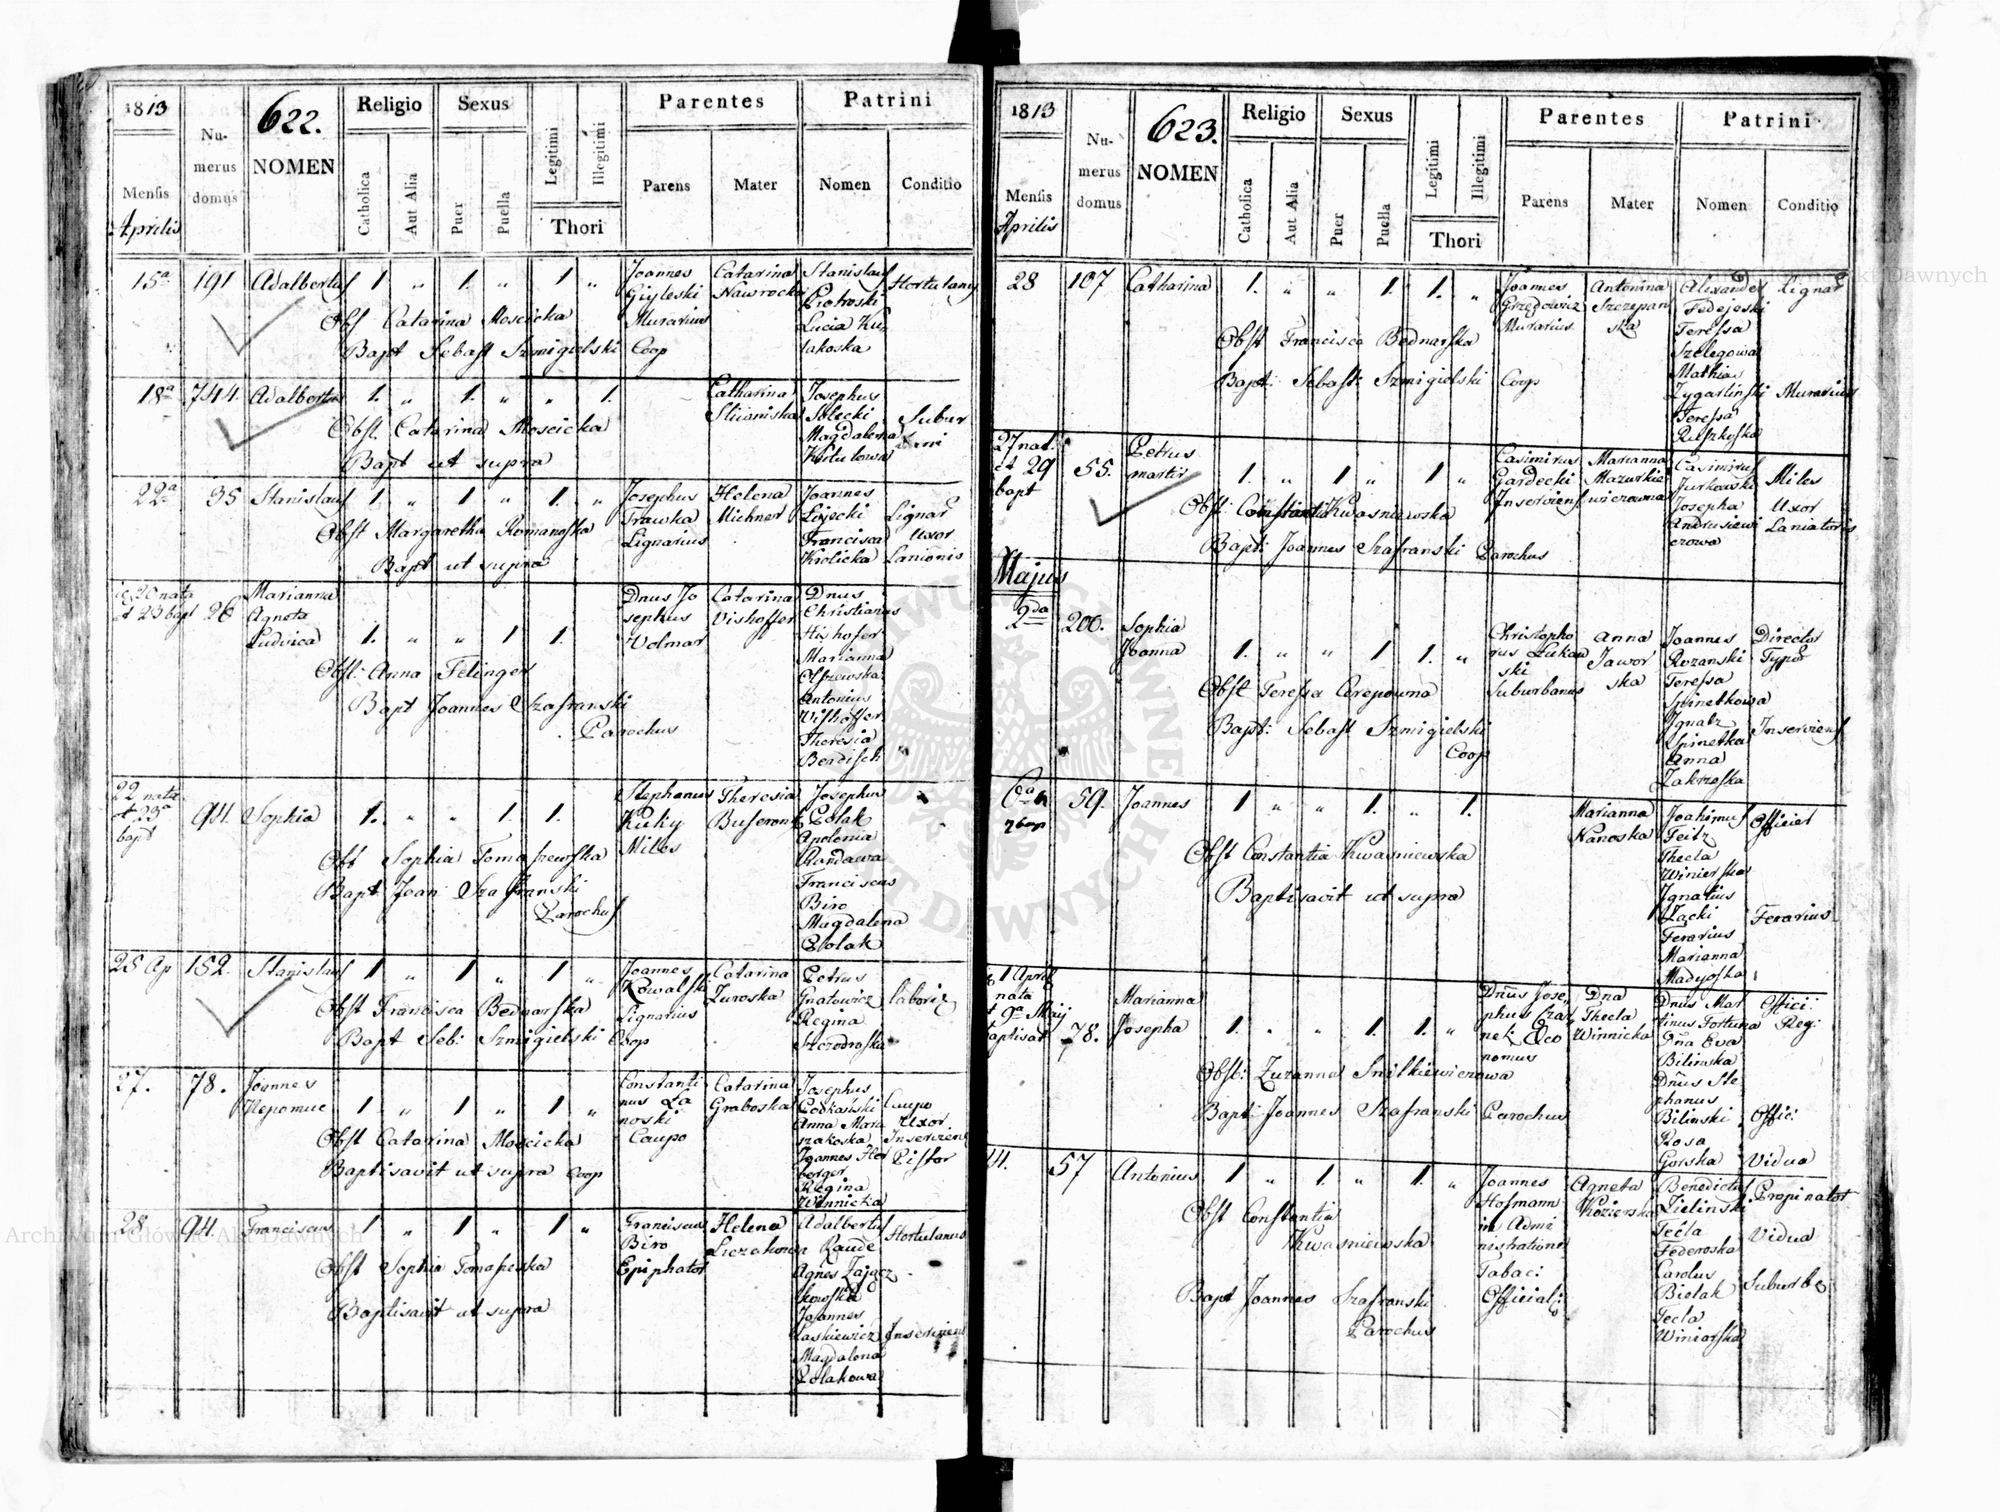 1813
Numerus domus
622.
NOMEN
Religio
Sexus
Legitimi
Illegitimi
Thori
Parentes
Patrini
Mensis
Aprilis
Catholica
Aut Alia
Puer
Puella
Parens
Mater
Nomen
Conditio
15a 191 Adalbertus 1 " 1. " 1. "
Joannes
Murarius
Catarina
Nawrocka
Stanislaus
Piotroski
Lucia
Hortulany
Obst Catarina Moscicka
Bapt Sebast Szmigielski Coop
18a 744. Adalbertus 1. " 1. " " 1.
Catharina
Josephus
Solecki
Magdalena
Obst. Catarina Moscicka
Bapt ut supra
22a 35 Stanislaus 1. " 1 " 1. "
Josephus
Trawka
Lignarius
Helena
Michner
Joannes
Łojecki
Francisca
Krolicka
Lignar
Uxor
Lanionis
Obst Margaretha Romanoska
Bapt ut supra
20 nata
et 23 bapt
26
Marianna
Agneta
Ludvica
1. " " 1 1.
Dnus Jo
sephus
Volmar
Catarina
Vishoffer
Dnus
Christianus
Hishofer
Marianna
Olszewska
Antonius
Vishoffer
Theresia
Berdisch
Obst: Anna Felinger
Bapt Joannes Szafranski
Parochus
22 nata
et 25a
bapt
94. Sophia 1. " " 1. 1.
Stephanus
Kuky
Miles
Theresia
Josephus
Polak
Apolonia
Randawa
Franciscus
Biro
Magdalena
Polak
Obst Sophia Tomaszewska
Bapt Joan Szafranski
Parochus
25 Ap 152. Stanislaus 1 " 1 " 1 "
Joannes
Kowalski
Lignarius
Catarina
Zuroska
Petrus
Gnatowicz
Regina
Szczodroska
Obst Francisca Bednarska
Bapt Seb: Szmigielski Coop
27. 78. Joannes
Nepomuc 1 " 1 " 1 "
Constanti
nus La
noski
Caupo
Catarina
Graboska
Josephus
Anna Mara
szakoska
Joannes Her
berger
Regina
Winnicka
Caupo
Uxor
Inservient
Pistor
Obst Catarina Moscicka
Baptisavit ut supra Coop
28 94. Franciscus 1 " 1 " 1 "
Franciscus
Biro
Epiphator
Helena
Adalbertus
Agnes Zającz
kowska
Joannes
Laskiewicz
Magdalena
Polakowa
Hortulanus
Inserviens
Obst Sophia Tomaszeska
Baptisavit ut supra
1813
Numerus domus
623.
NOMEN
Religio
Sexus
Legitimi
Illegitimi
Thori
Parentes
Patrini
Mensis
Aprilis
Catholica
Aut Alia
Puer
Puella
Parens
Mater
Nomen
Conditio
28 107 Catharina 1. " " 1. 1. "
Joannes
Grzędowicz
Murarius
Antonina
Szczepan
ska
Alexander
Fedejeski
Teressa
Szelegowa
Mathias
Zygarlinski
Teressa
Ruszkoska
Lignar
Murarius
Obst Francisca Bednarska
Bapt: Sebast: Szmigielski Coop
27 nat.
et 29
bapt
55.
Petrus
martir
1. " 1 " 1 "
Casimirus
Gardecki
Inserviens
Marianna
Mazurkie
wiczowna
Casimirus
Jurkowski
Josepha
Andrusiewi
czowa
Miles
Uxor
Laniatoris
Obst: Constantia Kwasniewska
Bapt: Joannes Szafranski Parochus
Majus
2da 200. Sophia
Joanna 1. " " 1 1. "
Christopho
rus Lukaw
ski
Suburbanus
Anna
Jawor
ska
Joannes
Rozanski
Teressa
Spinetkowa
Ignatz
Spinetka
Anna
Zakrzeska
Director
Inserviens
Obst Teressa Cerepowna
Bapt: Sebast Szmigielski
Coop
59. Joannes 1 " " 1. " 1.
Marianna
Nanoska
Joahimus
Feitz
Thecla
Winierska
Ignatius
Łacki
Ferarius
Marianna
Madyoska
Officiet
Ferarius
Obst Constantia Kwasniewska
Baptisavit ut supra
1 April
nata
et 9a Maij
baptisat 78.
Marianna
Josepha
1. " " 1. 1. "
Dnus Jose
phus Czar
nek Oeco
nomus
Dna
Thecla
Winnicka
Dnus Mar
tinus Fortuna
Dna Eva
Bilinska
Dnus Ste
phanus
Bilinski
Rosa
Gorska
Offici:
Reg:
Offici:
Vidua
Obst: Zuzanna Snilkiewiczowa
Bapt: Joannes Szafranski Parochus
57 Antonius 1 " 1. " 1. "
Joannes
Hofmann
in Admi
nistratione
Tabaci
Official:
Agneta
Kozierska
Benedictus
Zielinski
Tecla
Federoska
Carolus
Bielak
Tecla
Winiarska
Propinator
Vidua
Suburb
Obst Constantia
Kwasniewska
Bapt Joannes Szafranski
Parochus